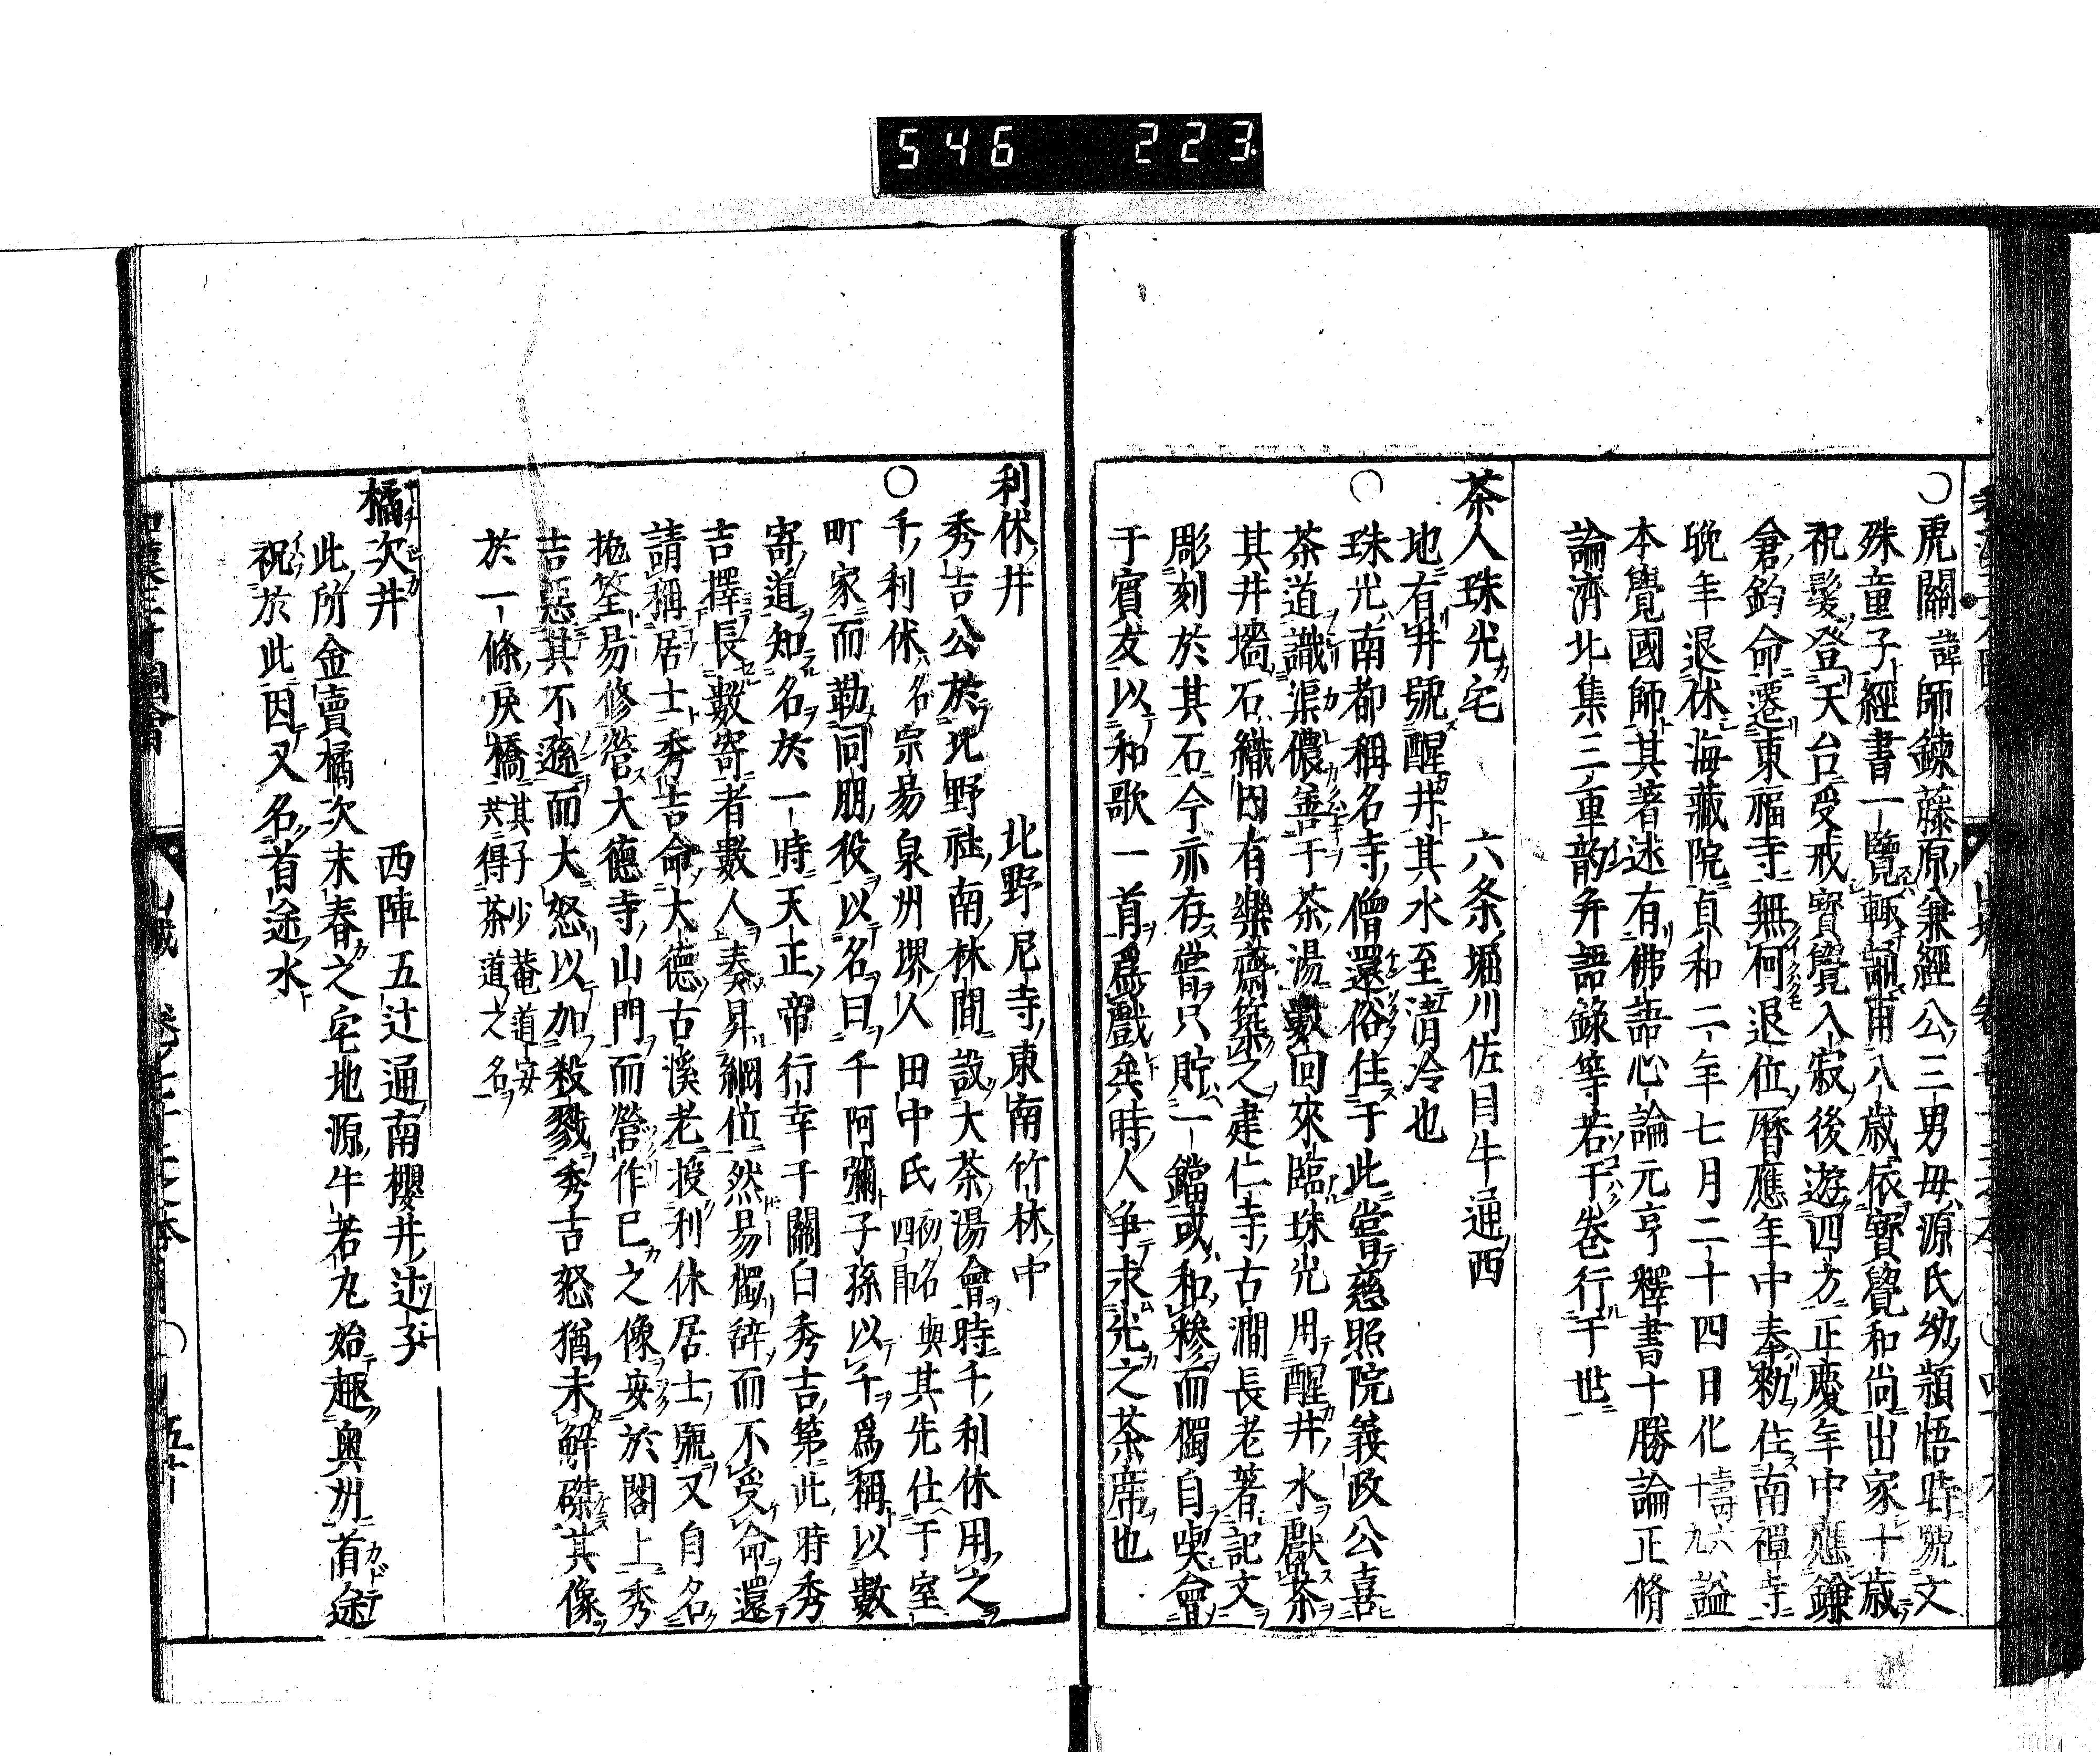 546 223
○虎關諱師鍊藤原兼經公三男母源氏幼頴悟時號文
殊童子經書一覽輙誦甫八歲依寶覺和尚出家十歲
祝髮登天台受戒寶覺入寂後遊四方正慶年中應鎌
倉鈞命遷東福寺無何退位曆應年中奉勅住南禪寺
晚年退休海藏院貞和二年七月二十四日化壽六十九謚
本覺國師其著述有佛語心論元亨釋書十勝論正脩
論濟北集三重韵并語錄等若干卷行于世
茶人珠光宅 六条堀川佐目牛通西
地有井號醒井其水至淸冷也
○珠光南都稱名寺僧還俗住于此當慈照院義政公喜
茶道識渠儂善于茶湯數向來臨珠光用醒井水獻茶
其井墻石織田有樂齋築之建仁寺古澗長老著記文
彫刻於其石今亦存嘗只貯一鐺或和糝而獨自喫會
于賓友以和歌一首爲戲矣時人争求光之茶席也
利休井 北野尼寺東南竹林中
秀吉公於北野社南林間設大茶湯會時千利休用之
○千利休名宗易泉州堺人田中氏初名與四郎其先仕于室
町家而勒同朋役以名曰千阿彌子孫以千爲稱以數
寄道知名於一時天正帝行幸于關白秀吉第此時秀
吉擇長數寄者數人奏昇綱位然易獨辞而不受命還
請稱居士秀吉命大德古溪老授利休居士號又自名
抛筌易修營大德寺山門而營作已之像安於閣上秀
吉惡其不遜而大怒以加殺戮秀吉怒猶未解磔其像
於一條戾橋其子少菴道安共得茶道之名
橘次井 西陣五辻通南櫻井辻子
此所金賣橘次末春之宅地源牛若丸始趣奥州首途
祝於此因又名首途水